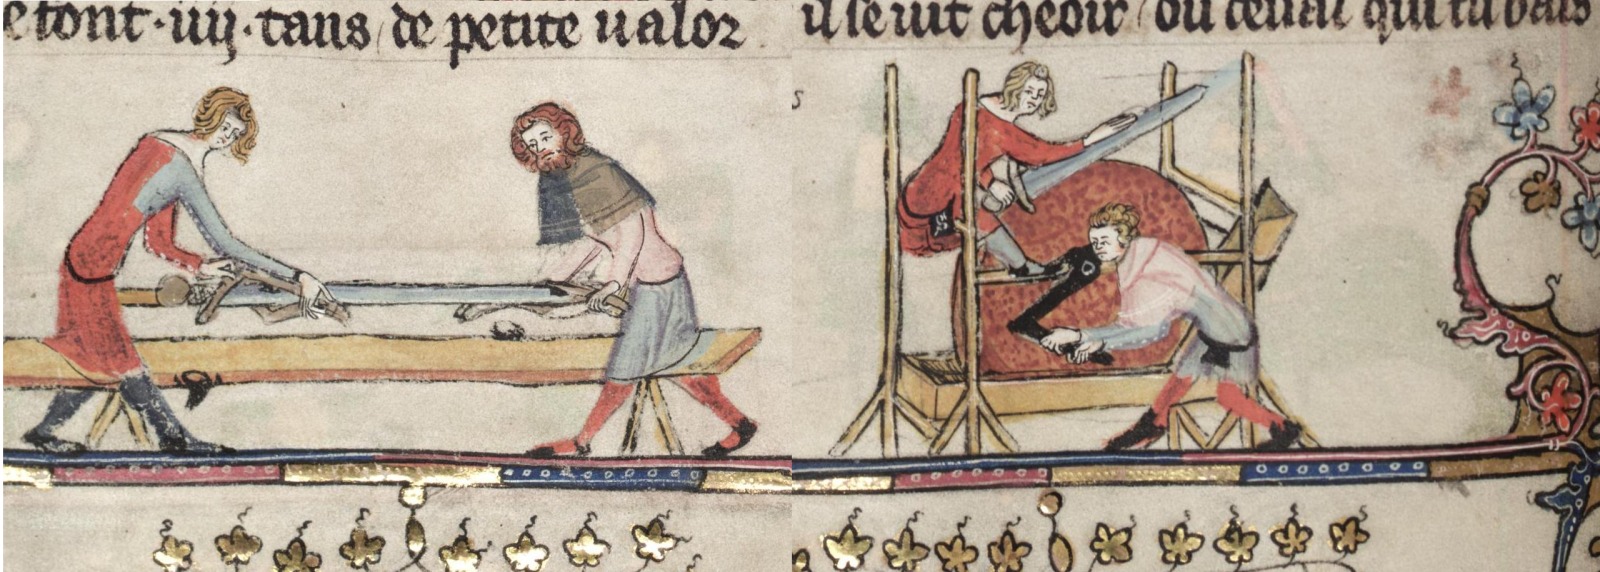 e font · iiij · tans / de petite ualor
il se uit cheoir / ou ceual qui fu bais
s